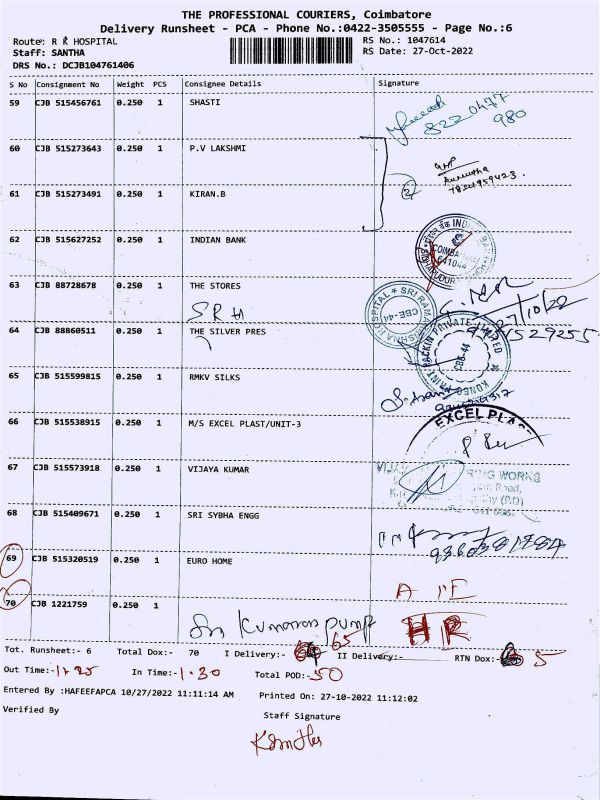 THE PROFESSIONAL COURIERS, Coimbatore
Delivery Runsheet - PCA - Phone No.:0422-3505555 - Page No.:6
Route: R K HOSPITAL
RS No.: 1047614
Staff: SANTHA
RS Date: 27-Oct-2022
DRS No.: DCJB104761406
S No Consignment No Weight PCS Consignee Details Signature
59 CJB 515456761 0.250 1 SHASTI
8220477
980
60 CJB 515273643 0.250 1 P.V LAKSHMI
61 CJB 515273491 0.250 1 KIRAN.B
2
62 CJB 515627252 0.250 1 INDIAN BANK
COIMBA
641044
63 CJB 88728678 0.250 1 THE STORES
SRH
HOSPITAL * SRI RAMA
CBE-44
27/10/22
64 CJB 88860511 0.250 1 THE SILVER PRES
PACKIN PRIVATE LIMITED
CBE-44
65 CJB 515599815 0.250 1 RMKV SILKS
66 CJB 515538915 0.250 1 M/S EXCEL PLAST/UNIT-3
EXCEL PLA
67 CJB 515573918 0.250 1 VIJAYA KUMAR
WORKS
68 CJB 515409671 0.250 1 SRI SYBHA ENGG
69 CJB 515320519 0.250 1 EURO HOME
70 CJB 1221759 0.250 1
Sri Kumaran pump
HR
Tot. Runsheet:- 6 Total Dox:- 70 I Delivery:- 65 II Delivery:- RTN Dox:- 5
Out Time:- 11.25 In Time:- 1.30 Total POD:- 50
Entered By :HAFEEFAPCA 10/27/2022 11:11:14 AM Printed On: 27-10-2022 11:12:02
Verified By
Staff Signature